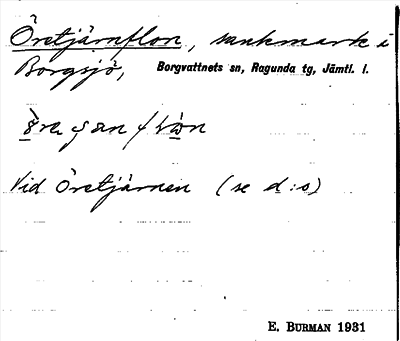 Öretjärnflon, sankmark i
Borgsjö, Borgvattnets sn, Ragunda tg, Jämtl. l.
Vid Öretjärnen (se d:o)
E. BURMAN 1931